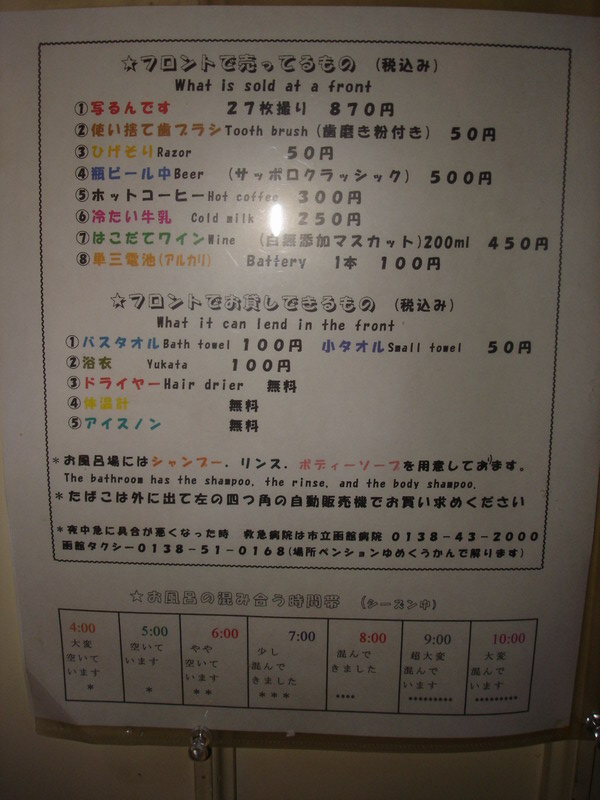 ☆フロントで売ってるもの (税込み)
What is sold at a front
①写るんです 27枚撮り 870円
②使い捨て歯ブラシTooth brush(歯磨き粉付き) 50円
③ひげそりRazor 50円
④瓶ビール中Beer (サッポロクラッシック) 500円
⑤ホットコーヒーHot coffee 300円
⑥冷たい牛乳 Cold milk 250円
⑦はこだてワインWine (白無添加マスカット)200ml 450円
⑧単三電池(アルカリ) Battery 1本 100円
☆フロントでお貸しできるもの (税込み)
What it can lend in the front
①バスタオルBath towel 100円 小タオルSmall towel 50円
②浴衣 Yukata 100円
③ドライヤーHair drier 無料
④体温計 無料
⑤アイスノン 無料
*お風呂場にはシャンプー. リンス. ボディーソープを用意してあります。
The bathroom has the shampoo, the rinse, and the body shampoo.
*たばこは外に出て左の四つ角の自動販売機でお買い求めください
*夜中急に具合が悪くなった時 救急病院は市立函館病院 0138-43-2000
函館タクシー0138-51-0168(場所ペンションゆめくうかんで解ります)
☆お風呂の混み合う時間帯 (シーズン中)
4:00 5:00 6:00 7:00 8:00 9:00 10:00
大変空いています 空いています やや空いています 少し混んできました 混んできました 超大変混んでいます 大変混んでいます
* * ** *** **** ********* *********